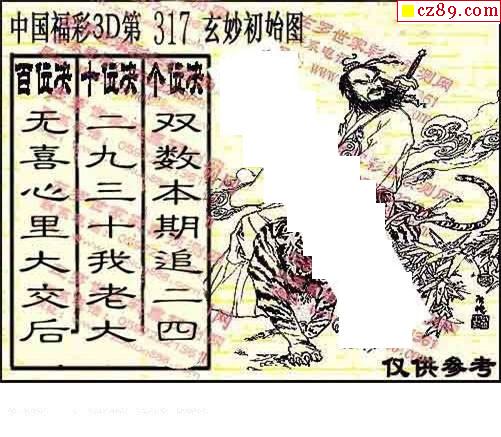 cz89.com
中国福彩3D第 317 玄妙初始图
百位决 十位决 个位决
无喜心里大交后
二九三十我老大
双数本期追二四
仅供参考